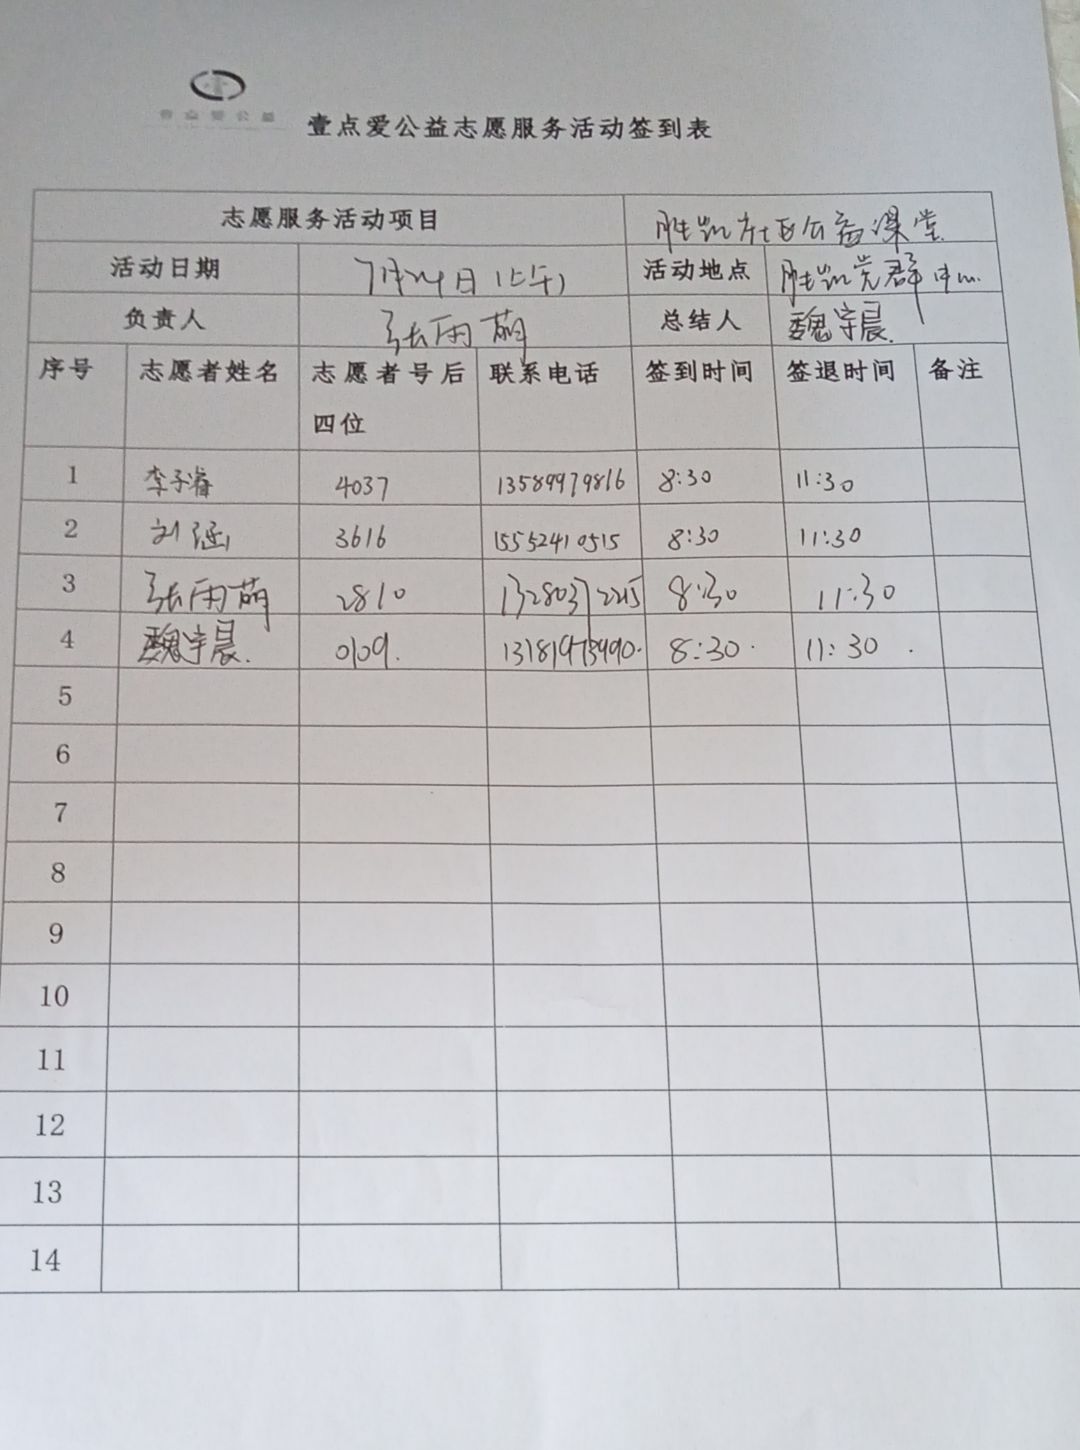 壹点爱公益
壹点爱公益志愿服务活动签到表
志愿服务活动项目 胜凯社区公益课堂
活动日期 7月24日(上午) 活动地点 胜凯党群中心
负责人 张雨萌 总结人 魏宇晨
序号 志愿者姓名 志愿者号后 联系电话 签到时间 签退时间 备注
四位
1 李子睿 4037 13589979816 8:30 11:30
2 刘涵 3616 15552410515 8:30 11:30
3 张雨萌 2810 13280372215 8:30 11:30
4 魏宇晨. 0109. 8:30. 11:30.
5
6
7
8
9
10
11
12
13
14